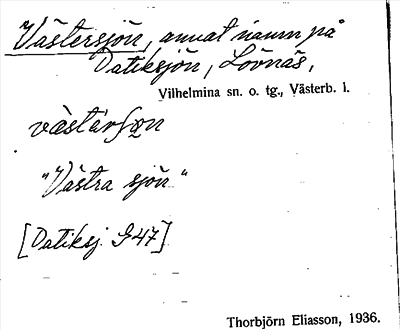 Västersjön, annat namn på
Datiksjön, Lövnäs,
Vilhelmina sn. o. tg., Västerb. l.
"Västra sjön"
[Datiksj. G47]
Thorbjörn Eliasson, 1936.